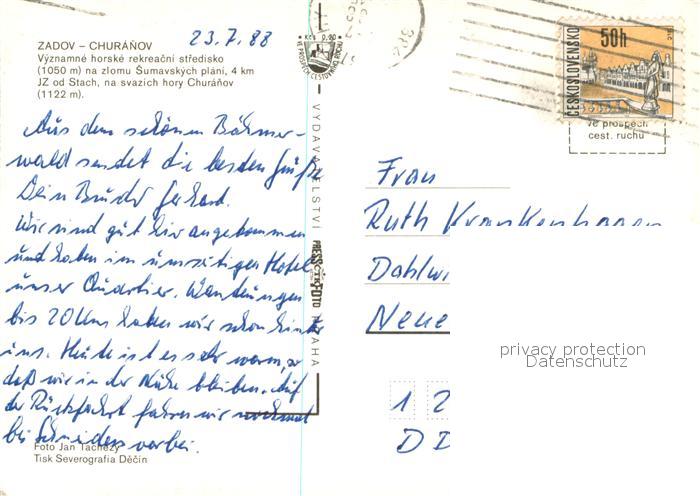 ZADOV – CHURÁŇOV
Významné horské rekreační středisko
(1050 m) na zlomu Šumavských plání, 4 km
JZ od Stach, na svazích hory Churáňov
(1122 m).
23.7.88
Aus dem schönen Böhmer-
wald sendet die besten Grüße
Dein Bruder Gerhard.
Wir sind gut hier angekommen
und haben im Hotel
unser Quartier. Wanderungen
bis 20 km haben wir schon hinter
uns. Heute ist es sehr warm, so
daß wir in der Nähe bleiben. Auf
der Rückfahrt fahren wir nochmal
bei Schneiders vorbei.
Foto Jan Tachezy
Tisk Severografia Děčín
VYDAVATELSTVÍ PRESSFOTO PRAHA
Kčs 0,20
VE PROSPĚCH CESTOVNÍHO RUCHU
ČESKOSLOVENSKO
50h
TELČ
ve prospěch
cest. ruchu
Frau
Ruth Krankenhagen
Dahlwi
Neue
1 2
D D
privacy protection
Datenschutz